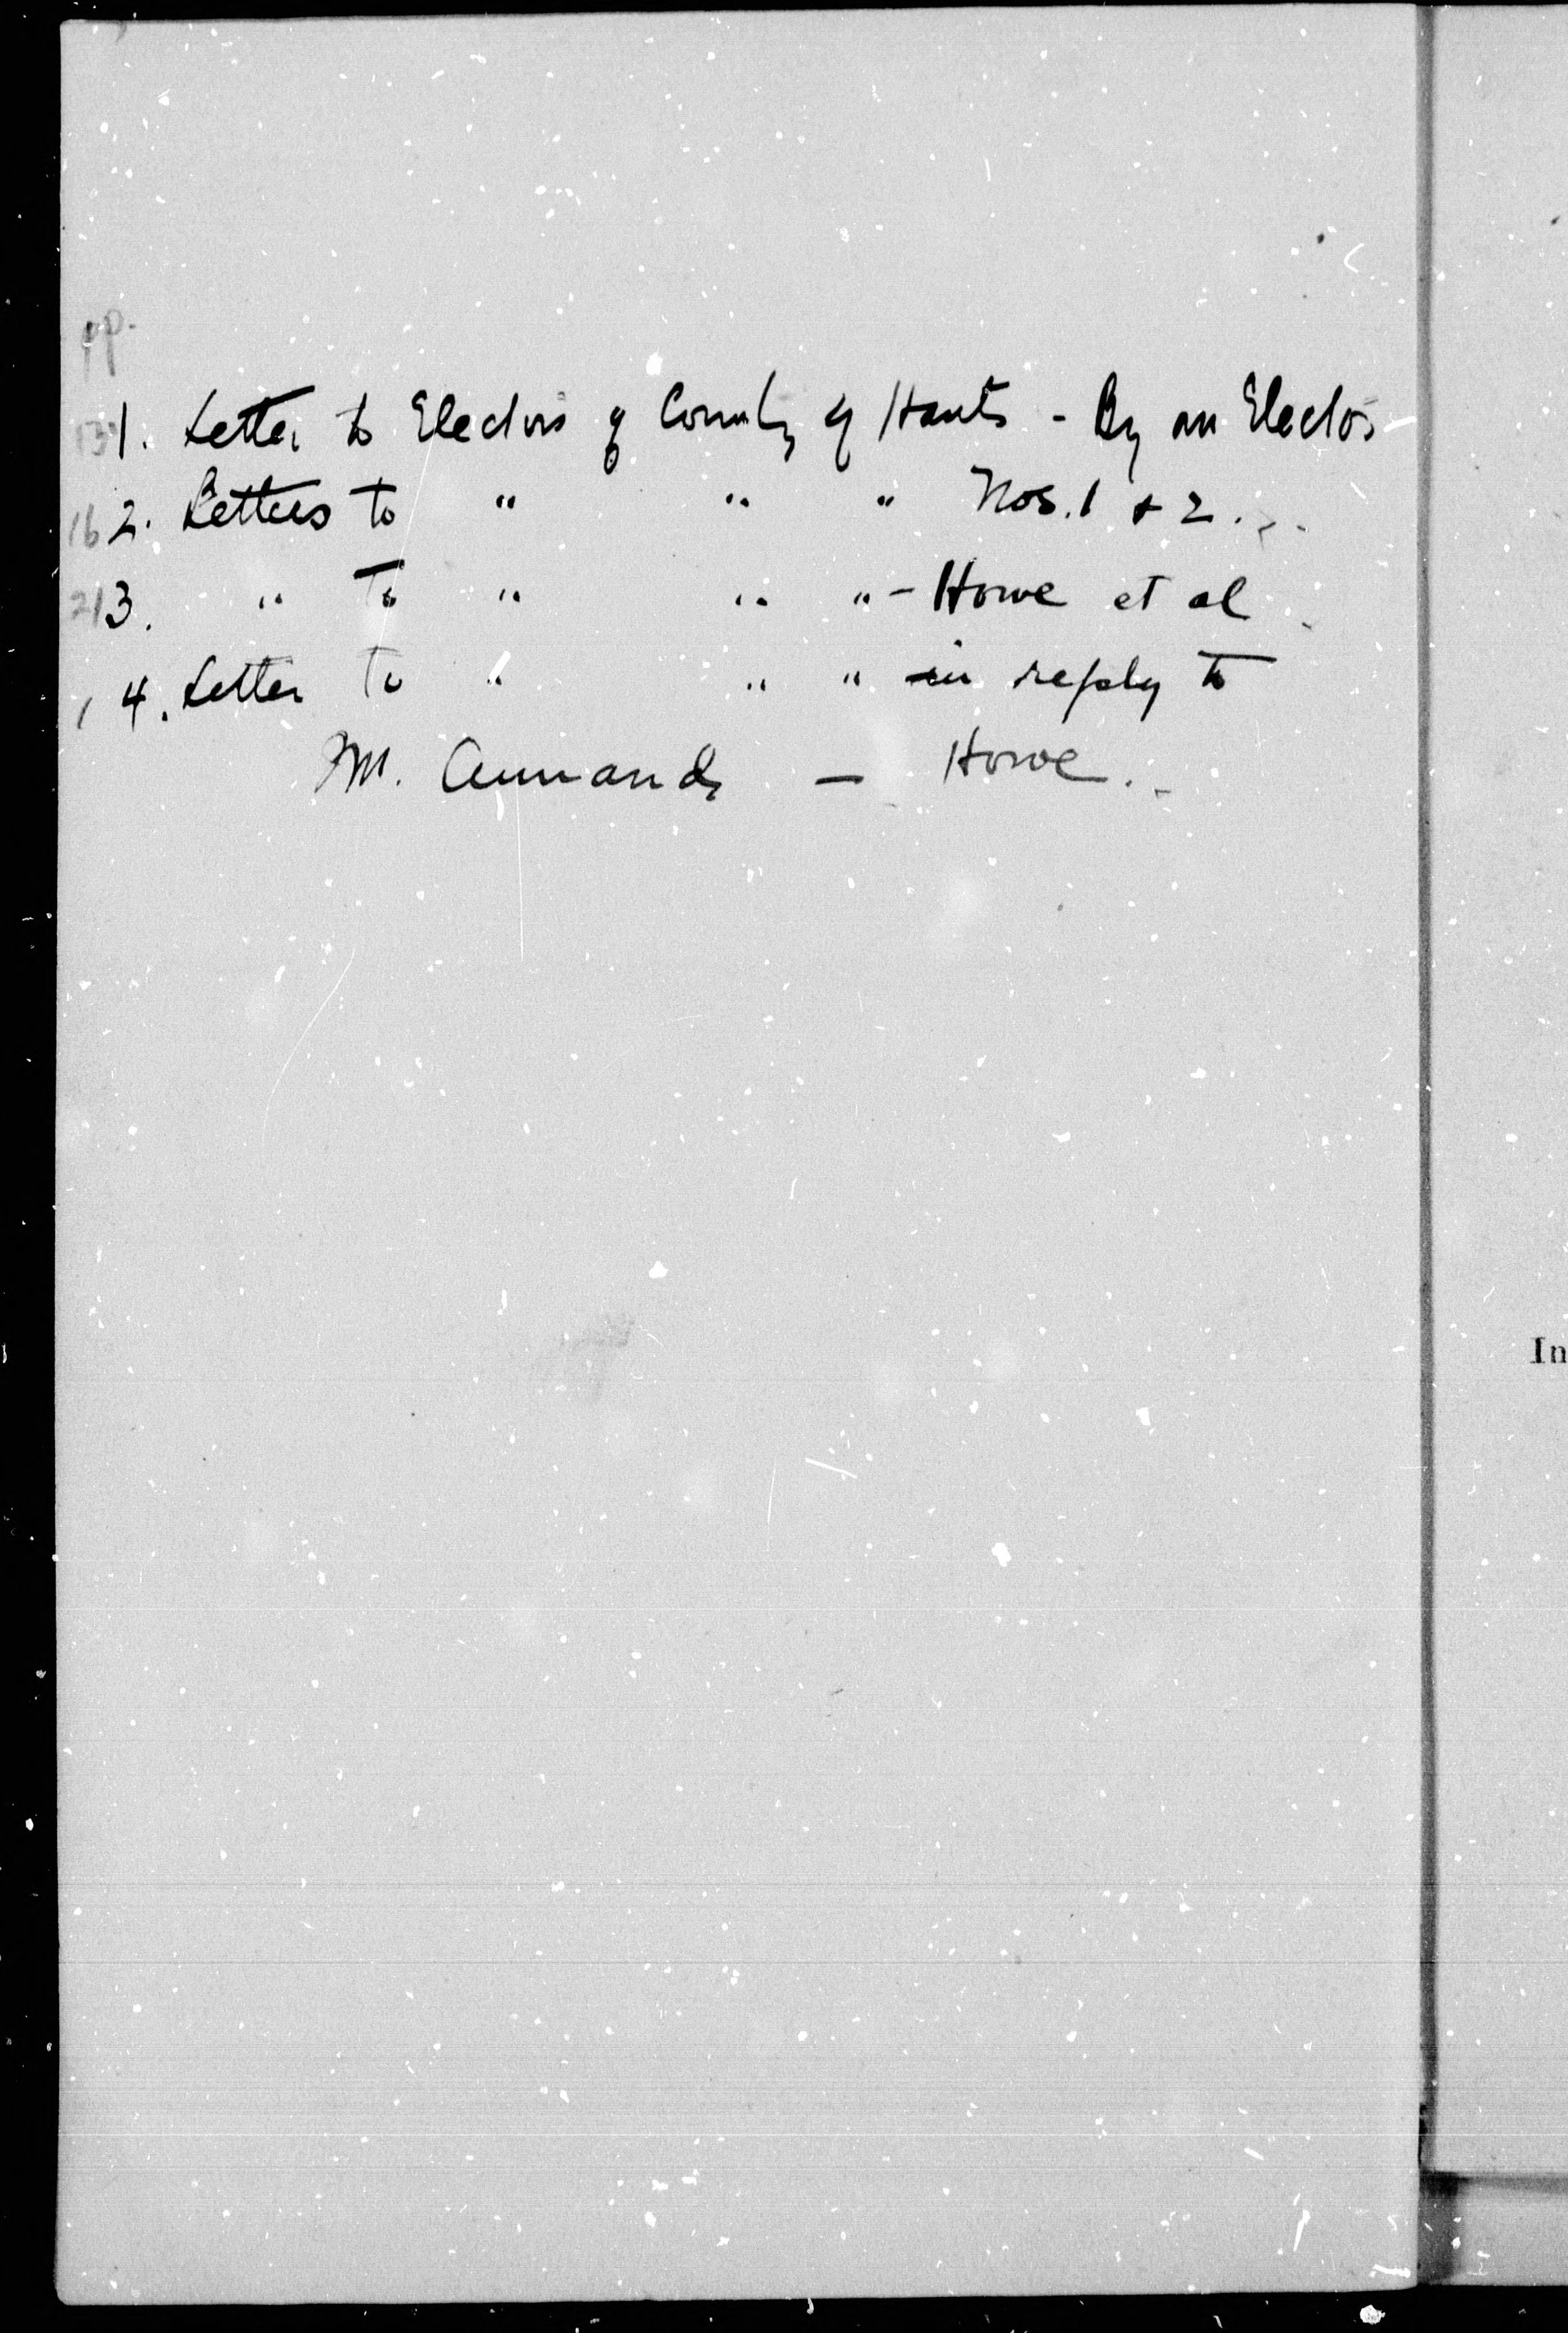 pp.
13 1. Letter to Electors of County of Hants - By an Elector
16 2. Letters to " " " Nos. 1 & 2.
21 3. " To " " " - Howe et al
4. Letter To " " " in reply to
M. Annand, — Howe.
In